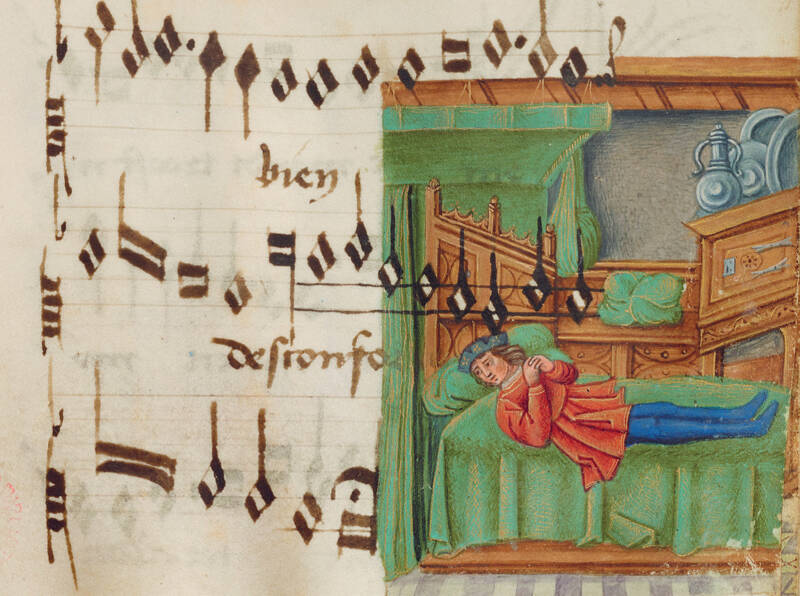 bien
desconfo